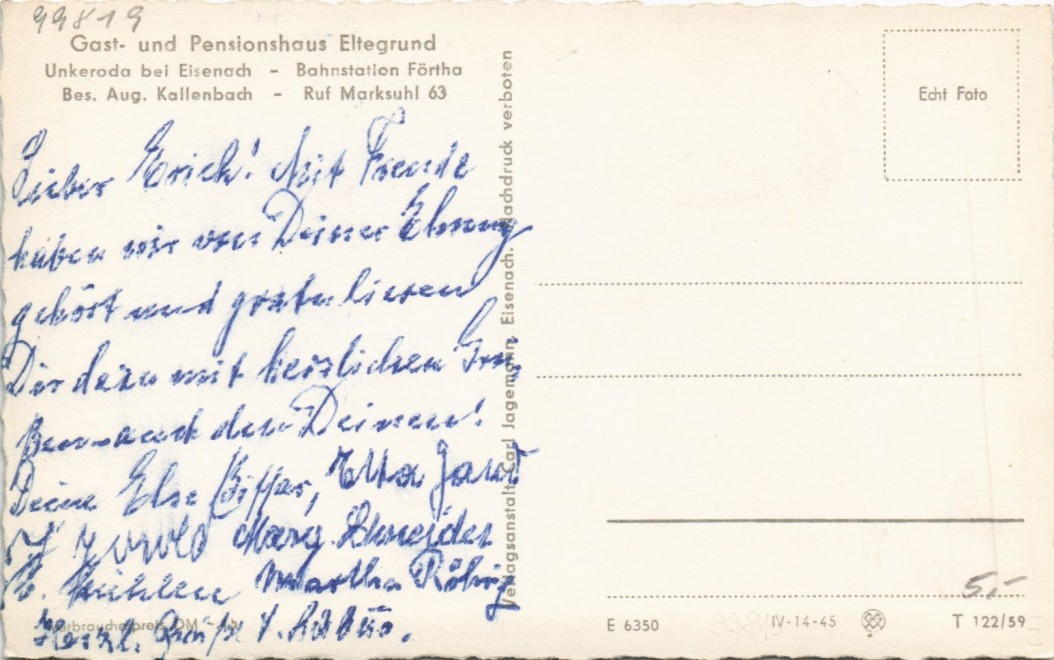 99819
Gast- und Pensionshaus Eltegrund
Unkeroda bei Eisenach - Bahnstation Förtha
Bes. Aug. Kallenbach - Ruf Marksuhl 63
Lieber Erich! Mit Freude
haben wir von Deiner Ehrung
gehört und gratulieren
Dir dazu mit herzlichen Grü-
auch den Deinen!
Deine Else Otto
Marg. Schneider
Martha Röhrig
Herzl. Grüße
Verbraucherpreis DM
Verlagsanstalt Carl Jagemann, Eisenach. Nachdruck verboten
Echt Foto
5,-
E 6350
IV-14-45
T 122/59